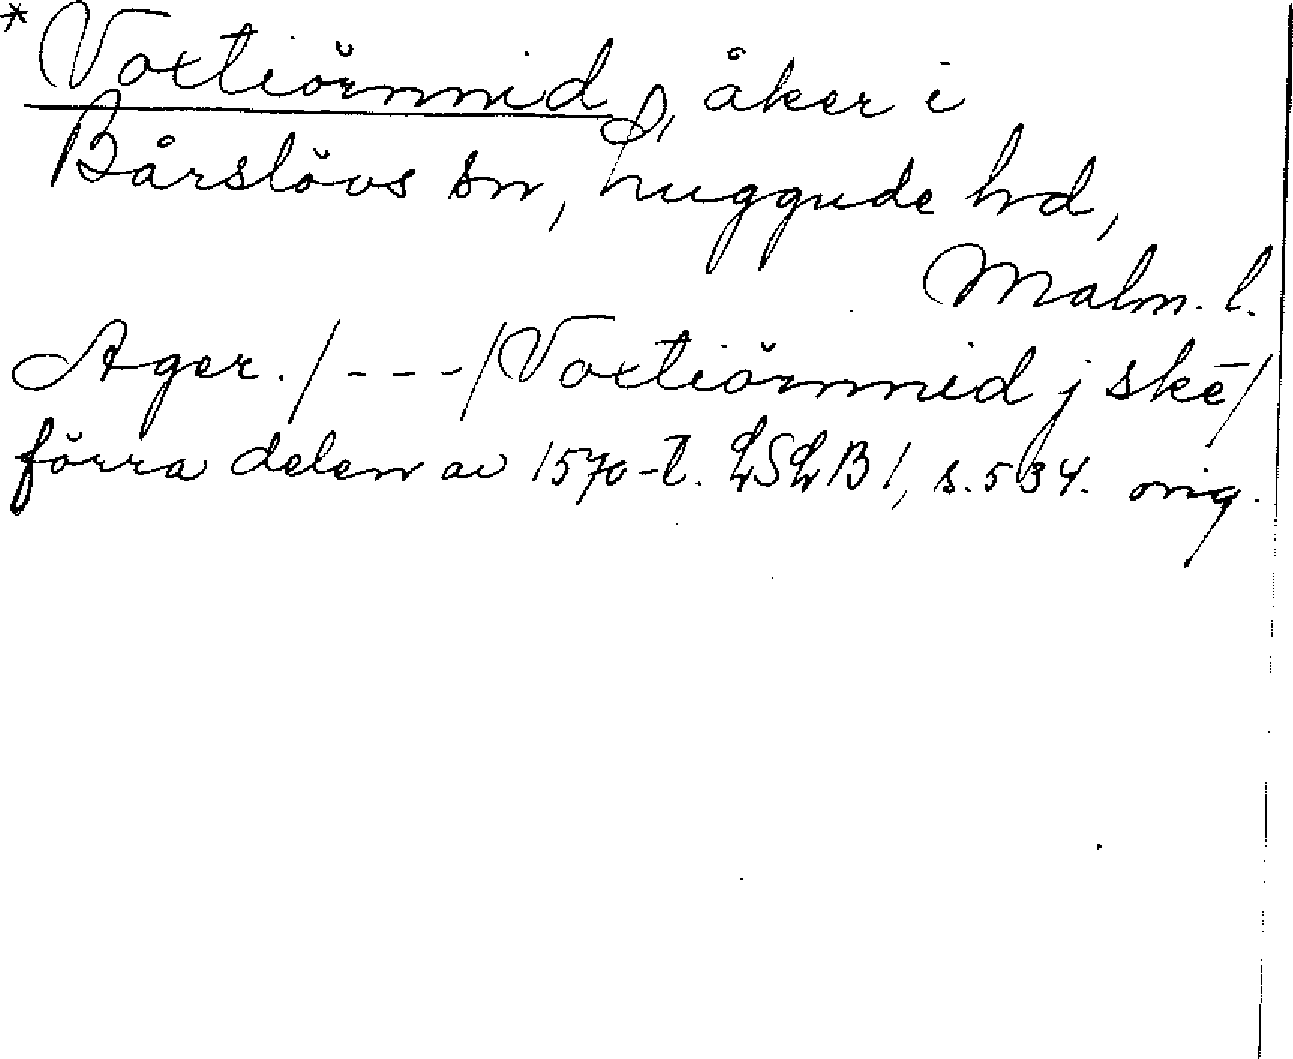 *Voxtiörnnid, åker i
Bårslövs sn, Luggude hd,
Malm. l.
Ager. /---/ Voxtiörnnid j skē/
förra delen av 1570-t. LSLB 1, s. 534. orig.